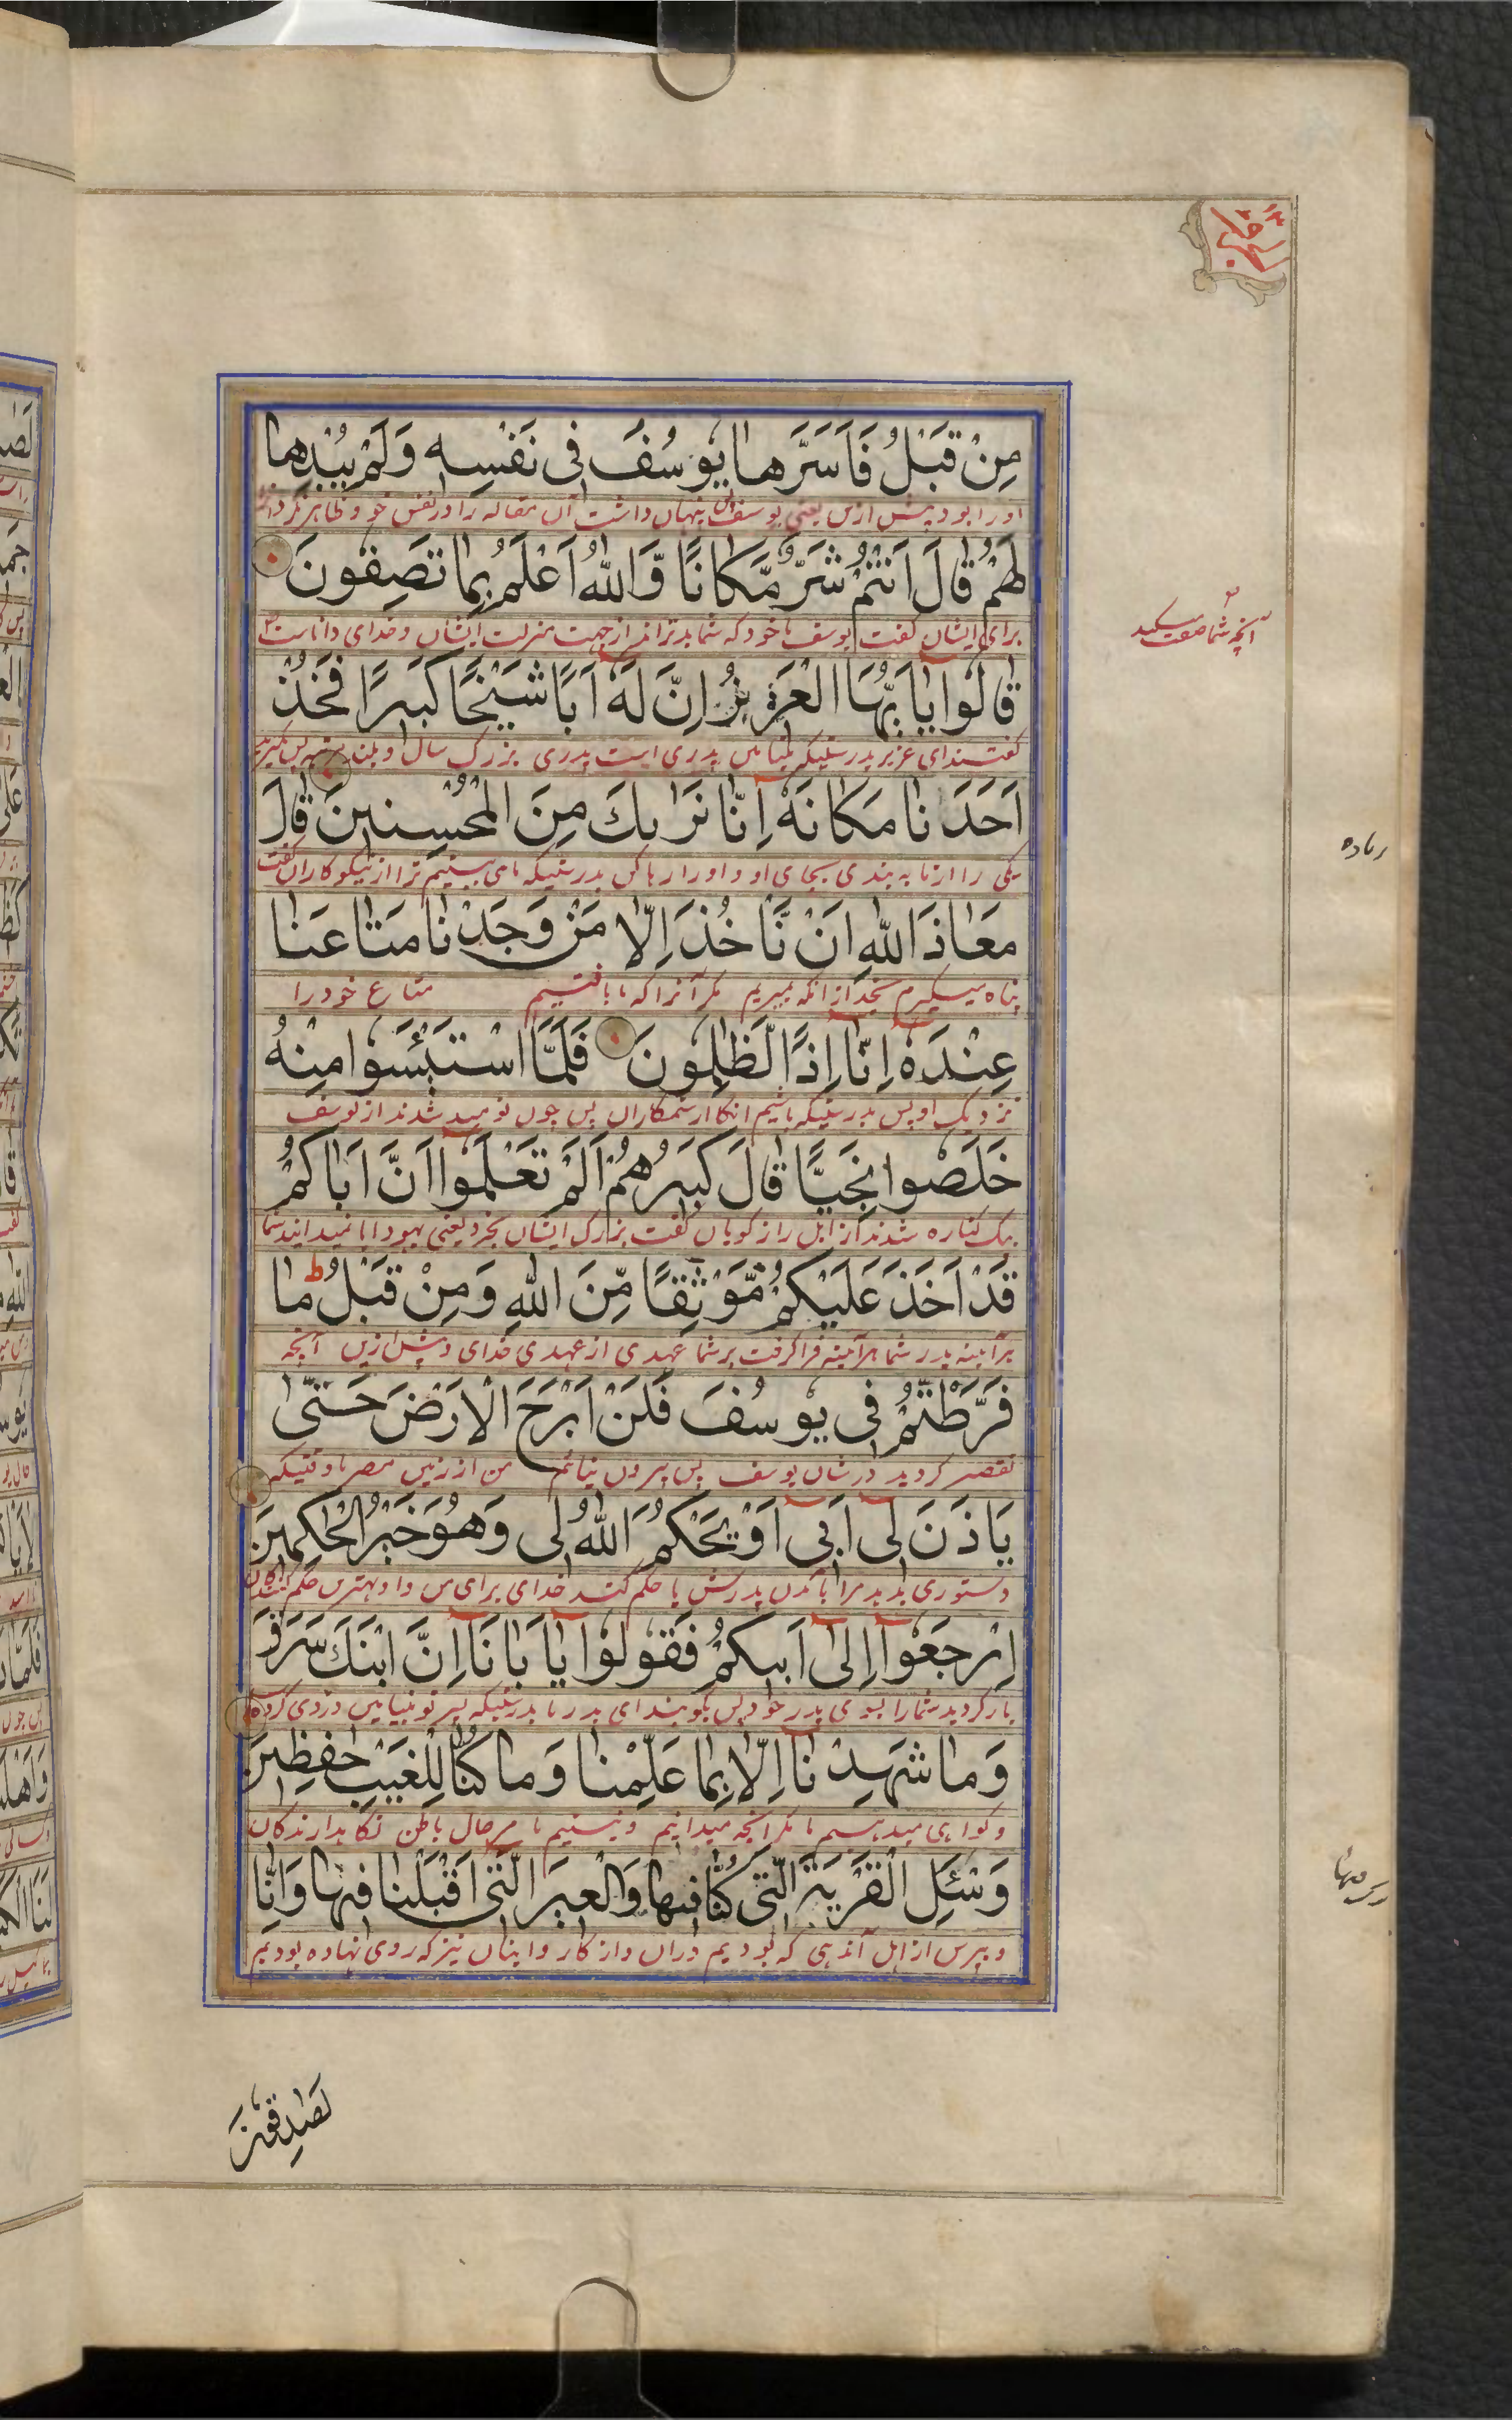 مِنْ قَبْلُ فَاَسَرَّها يوُسُفَ فى نَفْسِهِ وَلَمْ يُبْدِها
او را بود پیش ازین یعنی یوسف پس پنهان داشت آن مقاله را در نفس خود و ظاهر نکرد
لَهُمْ قالَ اَنْتُمْ شَرٌّ مَّكانًا وَّاللّٰهُ اَعْلَمُ بِما تَصِفُونَ
برای ایشان گفت یوسف با خود که شما بدترانید از جهت منزلت ایشان و خدای داناست
آنچه شما صفت میکنید
قالُوا يا اَيُّهَا الْعَزيزُ اِنَّ لَهٗ اَبًا شَيْخًا كَبيرًا فَخُذْ
گفتند ای عزیز بدرستیکه پدری است پدری بزرگ سال
اَحَدَنا مَكانَهٗ اِنّا نَرٰىكَ مِنَ الْمُحْسِنينَ قالَ
یکی را از ما به بندی بجای او و او را رها کن بدرستیکه ما می بینیم ترا از نیکوکاران گفت
مَعاذَ اللّٰهِ اَنْ نَّاْخُذَ اِلّا مَنْ وَجَدْنا مَتاعَنا
پناه میگیرم بخدا از آنکه بگیریم مگر آنرا که ما یافتیم متاع خود را
عِنْدَهٗ اِنّا اِذًا لَّظٰلِمُونَ فَلَمَّا اسْتَيْئَسُوا مِنْهُ
نزدیک او پس بدرستیکه باشیم آنگاه از ستمکاران پس چون نومید شدند از یوسف
خَلَصُوا نَجِيًّا قالَ كَبيرُهُمْ اَلَمْ تَعْلَمُوا اَنَّ اَباكُمْ
یک کناره شدند راز گویان گفت بزرگ ایشان بخرد یعنی یهودا آیا نمیدانید شما
قَدْ اَخَذَ عَلَيْكُمْ مَّوْثِقًا مِّنَ اللّٰهِ وَمِنْ قَبْلُ ما
هرآینه پدر شما هرآینه فرا گرفت بر شما عهدی از عهدی خدای و پیش ازین آنچه
فَرَّطْتُمْ فى يُوسُفَ فَلَنْ اَبْرَحَ الْاَرْضَ حَتّىٰ
تقصیر کردید در شان یوسف پس بیرون نیایم من از زمین مصر تا وقتیکه
يَاْذَنَ لى اَبى اَوْ يَحْكُمَ اللّٰهُ لى وَهُوَ خَيْرُ الْحٰكِمينَ
دستوری بدهد مرا پدرش یا حکم کند خدای برای من و او بهترین حکم کنندگان
اِرْجِعُوا اِلىٰ اَبيكُمْ فَقُولُوا يا اَبانا اِنَّ ابْنَكَ سَرَقَ
باز گردید شما را بسوی پدر خود پس بگویید ای پدر ما بدرستیکه پسر تو بنیامین دزدی کرد
وَما شَهِدْنا اِلّا بِما عَلِمْنا وَما كُنّا لِلْغَيْبِ حٰفِظينَ
و گواهی میدهیم ما مگر آنچه میدانیم و نیستیم ما مر حال باطن نگاهدارندگان
وَسْئَلِ الْقَرْيَةَ الَّتى كُنّا فيها وَالْعيرَ الَّتى اَقْبَلْنا فيها وَاِنّا
و بپرس از اهل آن دهی که بودیم در آن و از کاروانیان نیز که روی نهاده بودیم
لَصٰدِقُونَ